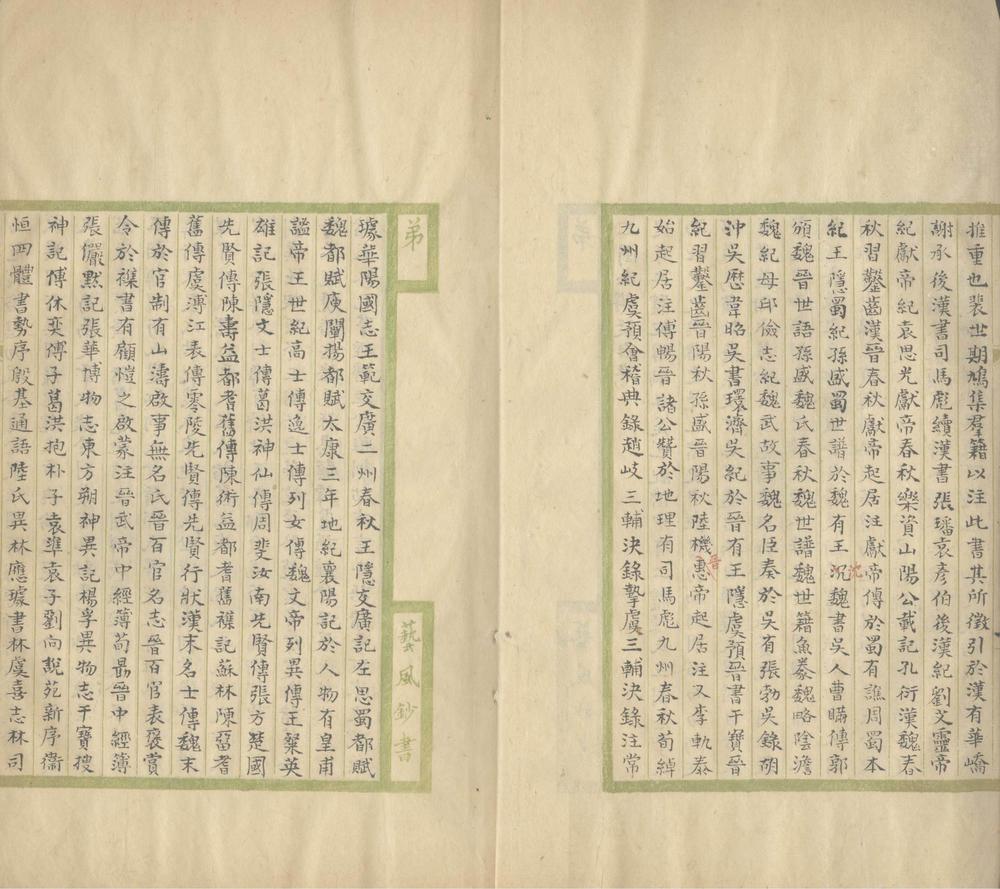 推重也裴世期鳩集羣籍以注此書其所徵引於漢有華嶠
謝承後漢書司馬彪續漢書張璠袁彥伯後漢紀劉艾靈帝
紀獻帝紀袁思光獻帝春秋樂資山陽公載記孔衍漢魏春
秋習鑿齒漢晉春秋獻帝起居注獻帝傳於蜀有譙周蜀本
紀王隱蜀紀孫盛蜀世譜於魏有王沉沈魏書吳人曹瞞傳郭
頒魏晉世語孫盛魏氏春秋魏世譜魏世籍魚豢魏略陰澹
魏紀母邱儉志紀魏武故事魏名臣奏於吳有張勃吳錄胡
沖吳歷韋昭吳書環濟吳紀於晉有王隱虞預晉書干寶晉
紀習鑿齒晉陽秋孫盛晉陽秋陸機晉惠帝起居注又李軌泰
始起居注傅暢晉諸公贊於地理有司馬彪九州春秋荀綽
九州紀虞預會稽典錄趙岐三輔決錄摯虞三輔決錄注常
第
藝風鈔書
璩華陽國志王範交廣二州春秋王隱交廣記左思蜀都賦
魏都賦庾闡揚都賦太康三年地紀襄陽記於人物有皇甫
謐帝王世紀高士傳逸士傳列女傳魏文帝列異傳王粲英
雄記張隱文士傳葛洪神仙傳周斐汝南先賢傳張方楚國
先賢傳陳壽益都耆舊傳陳術益都耆舊襍記蘇林陳畱耆
舊傳虞溥江表傳零陵先賢傳先賢行狀漢末名士傳魏末
傳於官制有山濤啟事無名氏晉百官名志晉百官表褒賞
令於襍書有顧愷之啟蒙注晉武帝中經簿荀勗晉中經簿
張儼默記張華博物志東方朔神異記楊孚異物志干寶搜
神記傅休奕傅子葛洪抱朴子袁準袁子劉向說苑新序衞
恒四體書勢序殷基通語陸氏異林應璩書林虞喜志林司